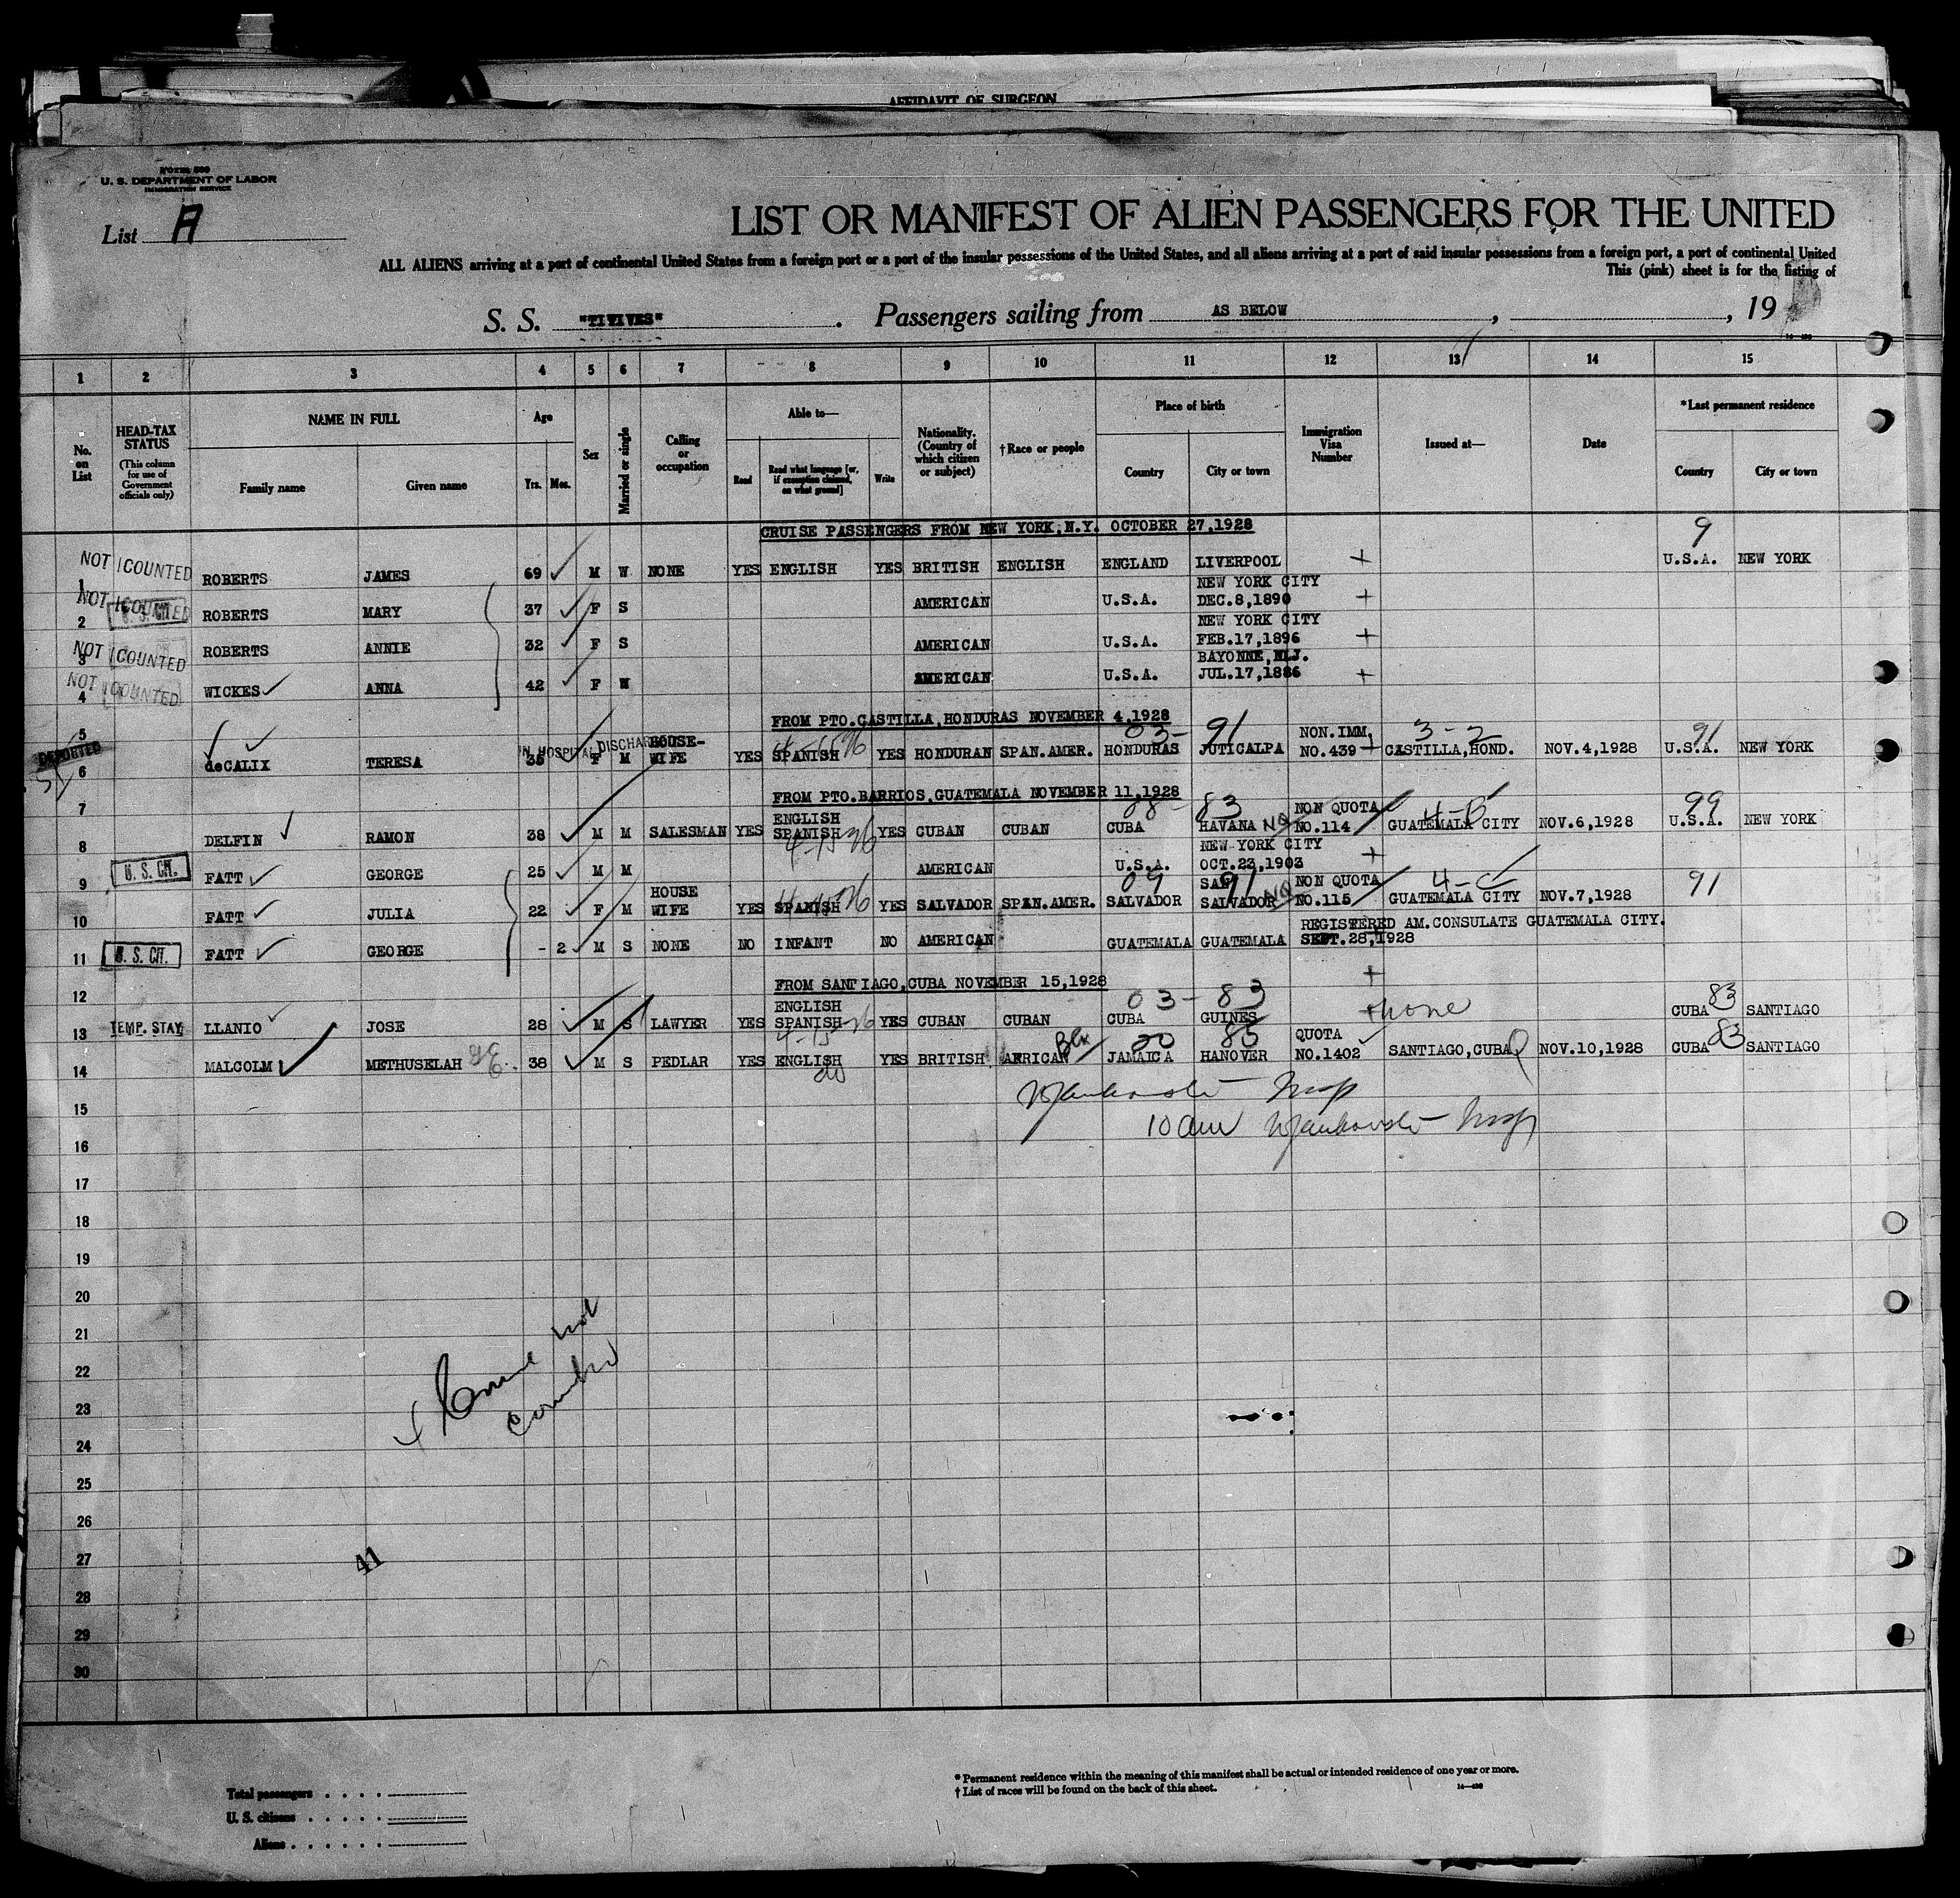 AFFIDAVIT OF SURGEON
U. S. DEPARTMENT OF LABOR
IMMIGRATION SERVICE
List A
LIST OR MANIFEST OF ALIEN PASSENGERS FOR THE UNITED
ALL ALIENS arriving at a port of continental United States from a foreign port or a port of the insular possessions of the United States, and all aliens arriving at a port of said insular possessions from a foreign port, a port of continental United
This (pink) sheet is for the listing of
S. S. "TIVIVES". Passengers sailing from AS BELOW, , 19
1 2 3 4 5 6 7 8 9 10 11 12 13 14 15
No. on List
HEAD-TAX STATUS (This column for use of Government officials only)
NAME IN FULL
Family name Given name
Age
Yrs. Mos.
Sex
Married or single
Calling or occupation
Able to—
Read Read what language [or, if exemption claimed, on what ground] Write
Nationality. (Country of which citizen or subject)
†Race or people
Place of birth
Country City or town
Immigration Visa Number
Issued at—
Date
*Last permanent residence
Country City or town
CRUISE PASSENGERS FROM NEW YORK, N.Y. OCTOBER 27,1928
9
NOT COUNTED
1 ROBERTS JAMES 69 M W NONE YES ENGLISH YES BRITISH ENGLISH ENGLAND LIVERPOOL + U.S.A. NEW YORK
NOT COUNTED
NEW YORK CITY
2 ROBERTS MARY 37 F S AMERICAN U.S.A. DEC.8,1890 +
NEW YORK CITY
NOT COUNTED
3 ROBERTS ANNIE 32 F S AMERICAN U.S.A. FEB.17,1896 +
BAYONNE, N.J.
NOT COUNTED
4 WICKES ANNA 42 F W AMERICAN U.S.A. JUL.17,1886 +
FROM PTO.CASTILLA,HONDURAS NOVEMBER 4,1928
5
03- 91 3-2 91
DEPORTED
IN HOSPITAL DISCHARGED
HOUSE- NON.IMM.
6 deCALIX TERESA 35 F M WIFE YES SPANISH YES HONDURAN SPAN.AMER. HONDURAS JUTICALPA NO.439 + CASTILLA,HOND. NOV.4,1928 U.S.A. NEW YORK
FROM PTO.BARRIOS,GUATEMALA NOVEMBER 11,1928
7
08- 83 99
ENGLISH NON QUOTA
8 DELFIN RAMON 38 M M SALESMAN YES SPANISH YES CUBAN CUBAN CUBA HAVANA NO.114 GUATEMALA CITY NOV.6,1928 U.S.A. NEW YORK
NEW YORK CITY
9 U.S. CIT. FATT GEORGE 25 M M AMERICAN U.S.A. OCT.23,1903 +
09 91 91
HOUSE SAN NON QUOTA
10 FATT JULIA 22 F M WIFE YES SPANISH YES SALVADOR SPAN.AMER. SALVADOR SALVADOR NO.115 GUATEMALA CITY NOV.7,1928
REGISTERED AM.CONSULATE GUATEMALA CITY.
11 U.S. CIT. FATT GEORGE - 2 M S NONE NO INFANT NO AMERICAN GUATEMALA GUATEMALA SEPT.28,1928
FROM SANTIAGO,CUBA NOVEMBER 15,1928 +
12
03 - 83 83
ENGLISH
13 TEMP. STAY LLANIO JOSE 28 M S LAWYER YES SPANISH YES CUBAN CUBAN CUBA GUINES none CUBA SANTIAGO
4-15 Blk 20 85 QUOTA 83
14 MALCOLM METHUSELAH 38 M S PEDLAR YES ENGLISH YES BRITISH AFRICAN JAMAICA HANOVER NO.1402 SANTIAGO,CUBA NOV.10,1928 CUBA SANTIAGO
15
10 am
16
17
18
19
20
21
22
23
24
25
26
27
28
29
30
not
41
Total passengers
U. S. citizens
Aliens
* Permanent residence within the meaning of this manifest shall be actual or intended residence of one year or more.
† List of races will be found on the back of this sheet.